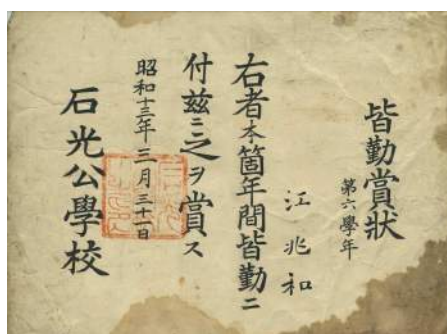 皆勤賞狀
第六學年
江兆和
右者本箇年間皆勤ニ
付兹ニ之ヲ賞ス
昭和十三年三月三十一日
石光公學校